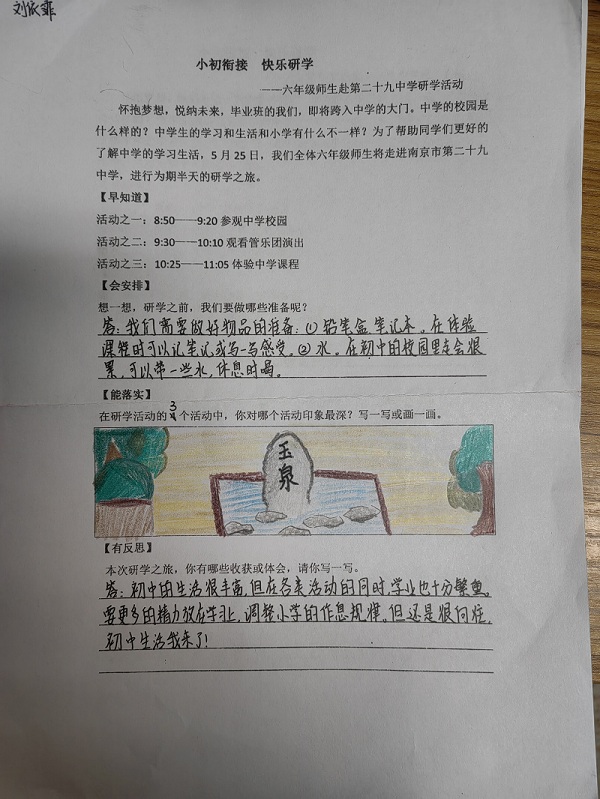 刘依菲
小初衔接 快乐研学
——六年级师生赴第二十九中学研学活动
怀抱梦想，悦纳未来，毕业班的我们，即将跨入中学的大门。中学的校园是
什么样的？中学生的学习和生活和小学有什么不一样？为了帮助同学们更好的
了解中学的学习生活，5 月 25 日，我们全体六年级师生将走进南京市第二十九
中学，进行为期半天的研学之旅。
【早知道】
活动之一：8:50——9:20 参观中学校园
活动之二：9:30——10:10 观看管乐团演出
活动之三：10:25——11:05 体验中学课程
【会安排】
想一想，研学之前，我们要做哪些准备呢？
答：我们需要做好物品的准备：① 铅笔盒、笔记本。在体验
课程时可以记笔记或写一写感受。② 水。在初中的校园里走会很
累，可以带一些水，休息时喝。
【能落实】
在研学活动的 3 个活动中，你对哪个活动印象最深？写一写或画一画。
玉泉
【有反思】
本次研学之旅，你有哪些收获或体会，请你写一写。
答：初中的生活很丰富，但在各类活动的同时，学业也十分繁重。
要更多的精力放在学习上，调整小学的作息规律。但还是很向往，
初中生活我来了！